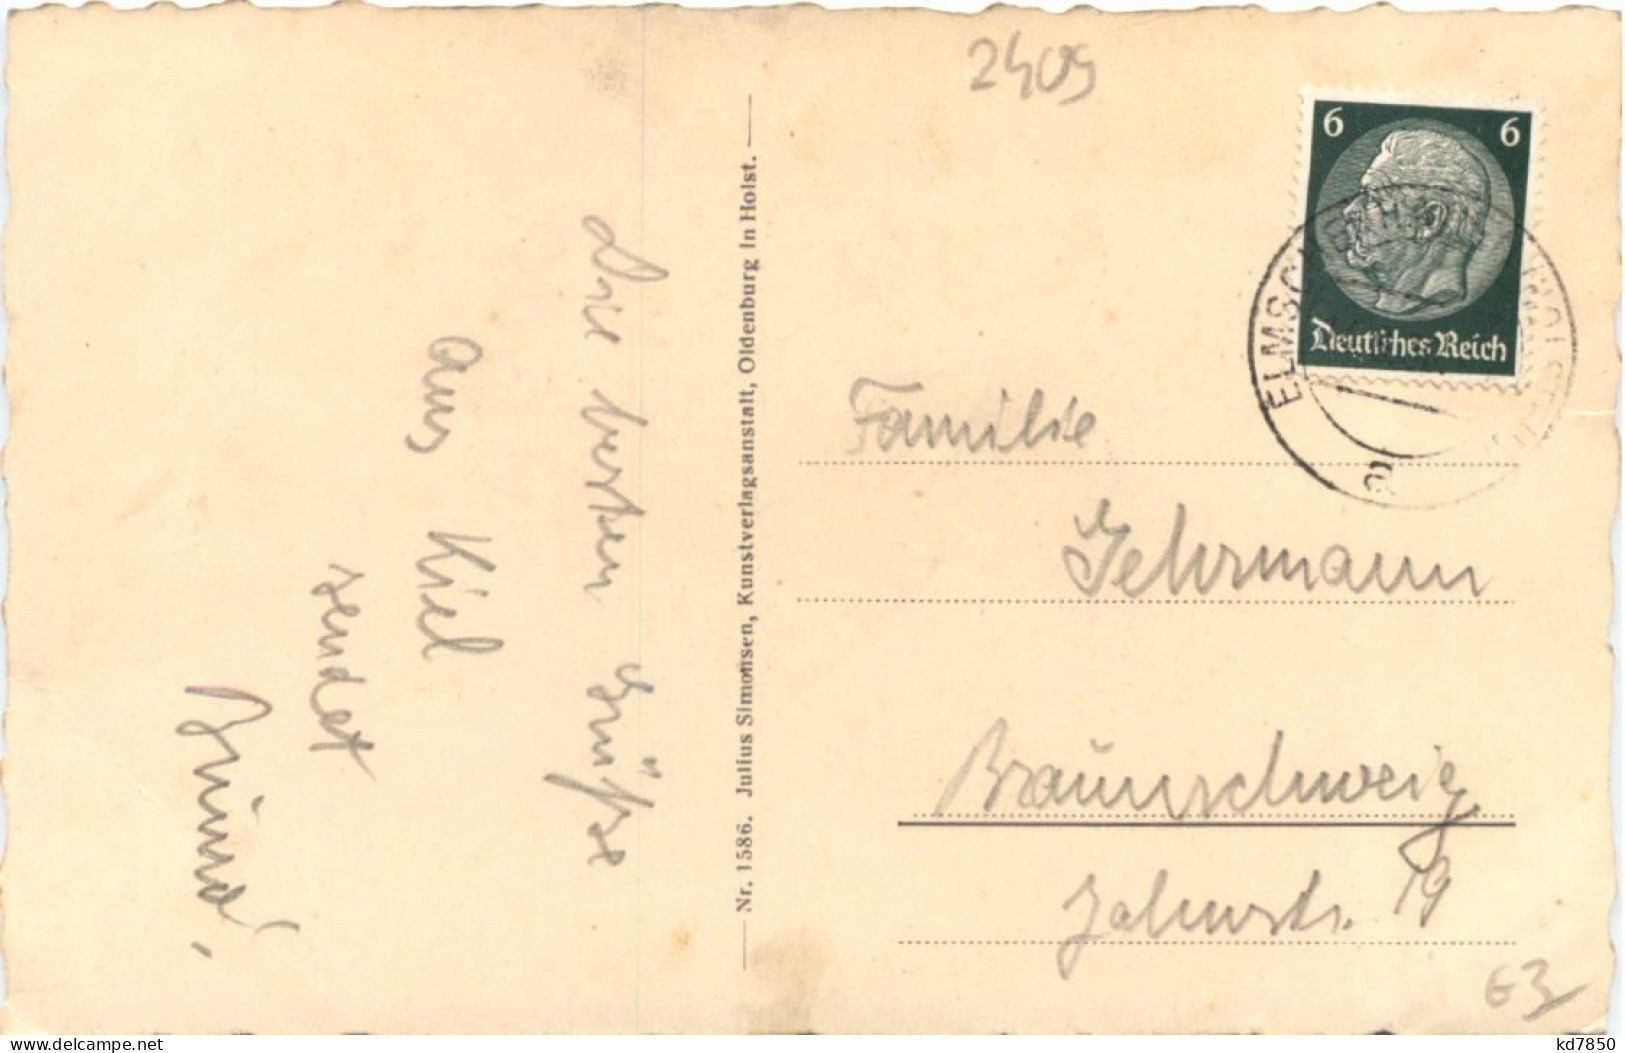 2409
6 6
Deutsches Reich
ELMSCH
a
Die besten Grüße
aus Kiel
sendet
Nr. 1586. Julius Simonsen, Kunstverlagsanstalt, Oldenburg in Holst.
Familie
Gehrmann
Braunschweig
Jahnstr. 19
63
www.delcampe.net
kd7850